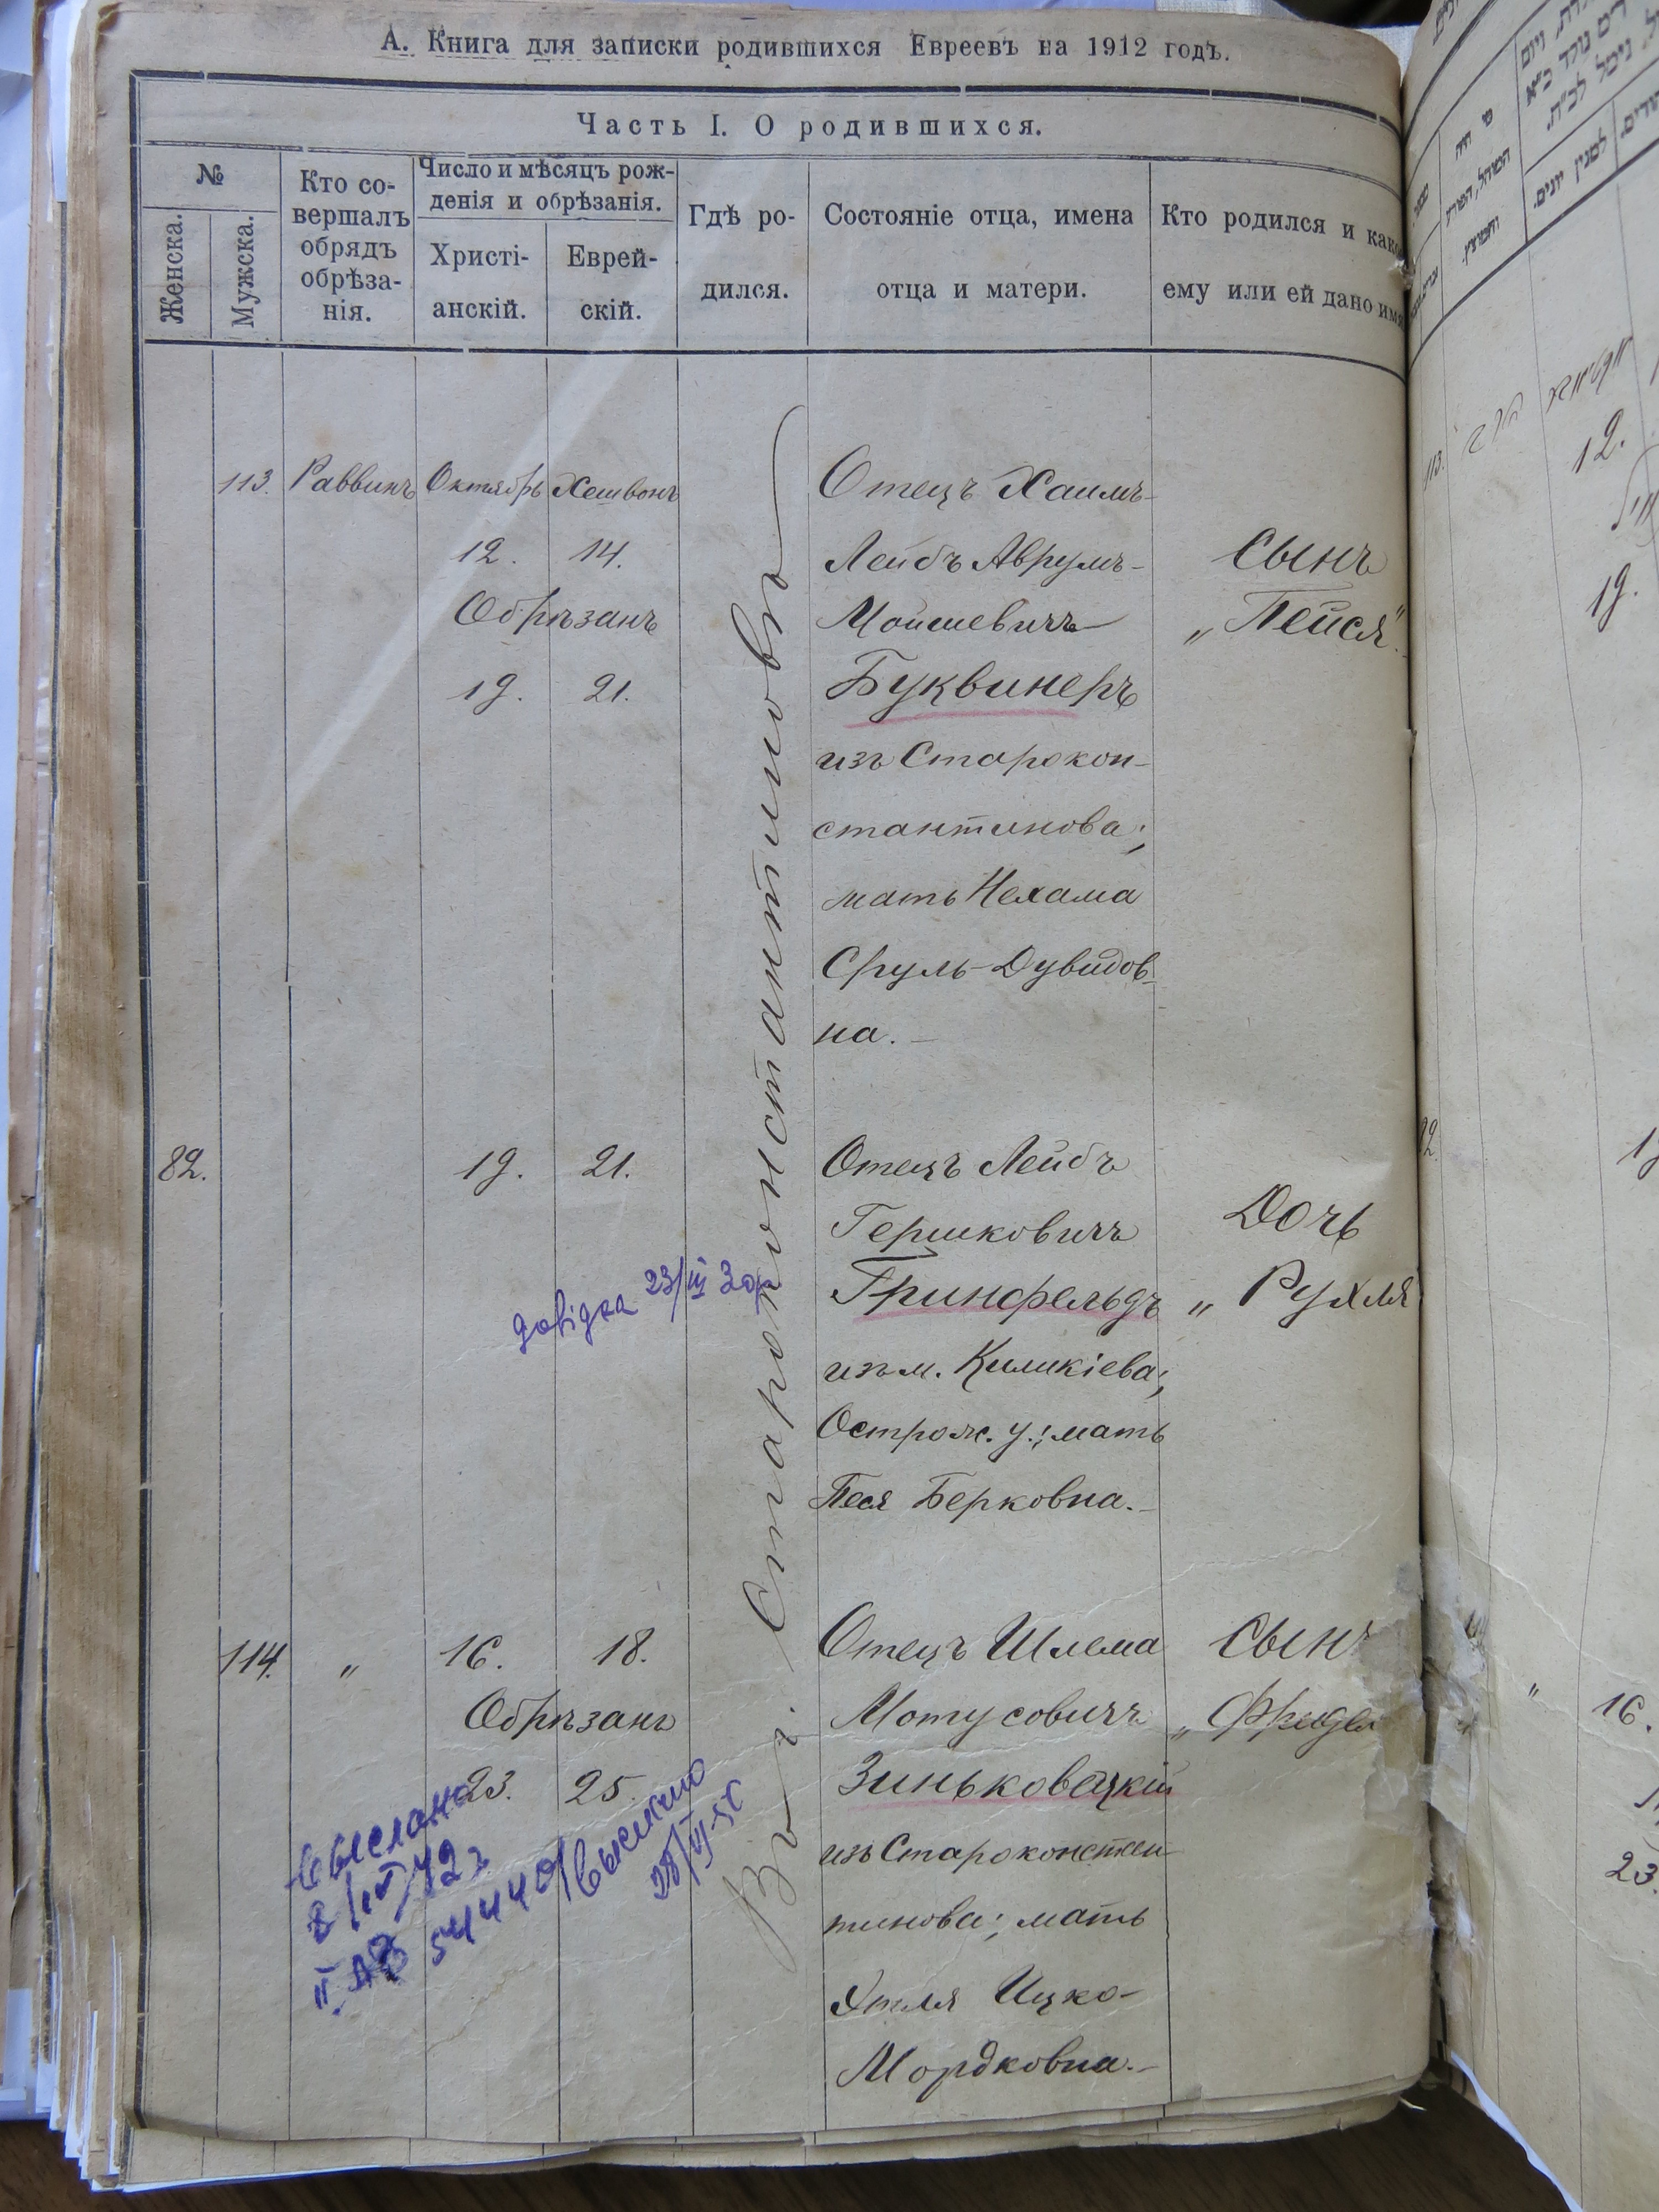 А. Книга для записки родившихся Евреевъ на 1912 годъ.
Часть I. О родившихся.
№
Женска.
Мужска.
Кто со-
вершалъ
обрядъ
обрѣза-
нія.
Число и мѣсяцъ рож-
денія и обрѣзанія.
Христі-
анскій.
Еврей-
скій.
Гдѣ ро-
дился.
Состояніе отца, имена
отца и матери.
Кто родился и како
ему или ей дано имя
113. Раввинъ Октябрь Хешвонъ
12. 14.
Обрѣзанъ
19. 21.
Въ г. Староконстантиновѣ
Отецъ Хаимъ-
Лейбъ Аврумъ-
Мошиевичъ
Буквинеръ
изъ Старокон-
стантинова;
мать Нехама
Сруль-Дувидов-
на.
Сынъ
„Пейся".
82. 19. 21.
Отецъ Лейбъ
Гершковичъ
Гринфельдъ
изъ м. Киликіева;
Острож. у.; мать
Песя Берковна.
Дочь
„Рухля
довідка 23/III 30р
114. „ 16. 18.
Обрѣзанъ
23. 25.
Отецъ Шлема
Мотусовичъ
Зиньковецкій
изъ Староконстан
тинова; мать
Этля Ицко-
Мордковна.
Сынъ
„Фридел
выслано
8/III/42г
II АВ 54440/выслано
12.
19.
16.
23.